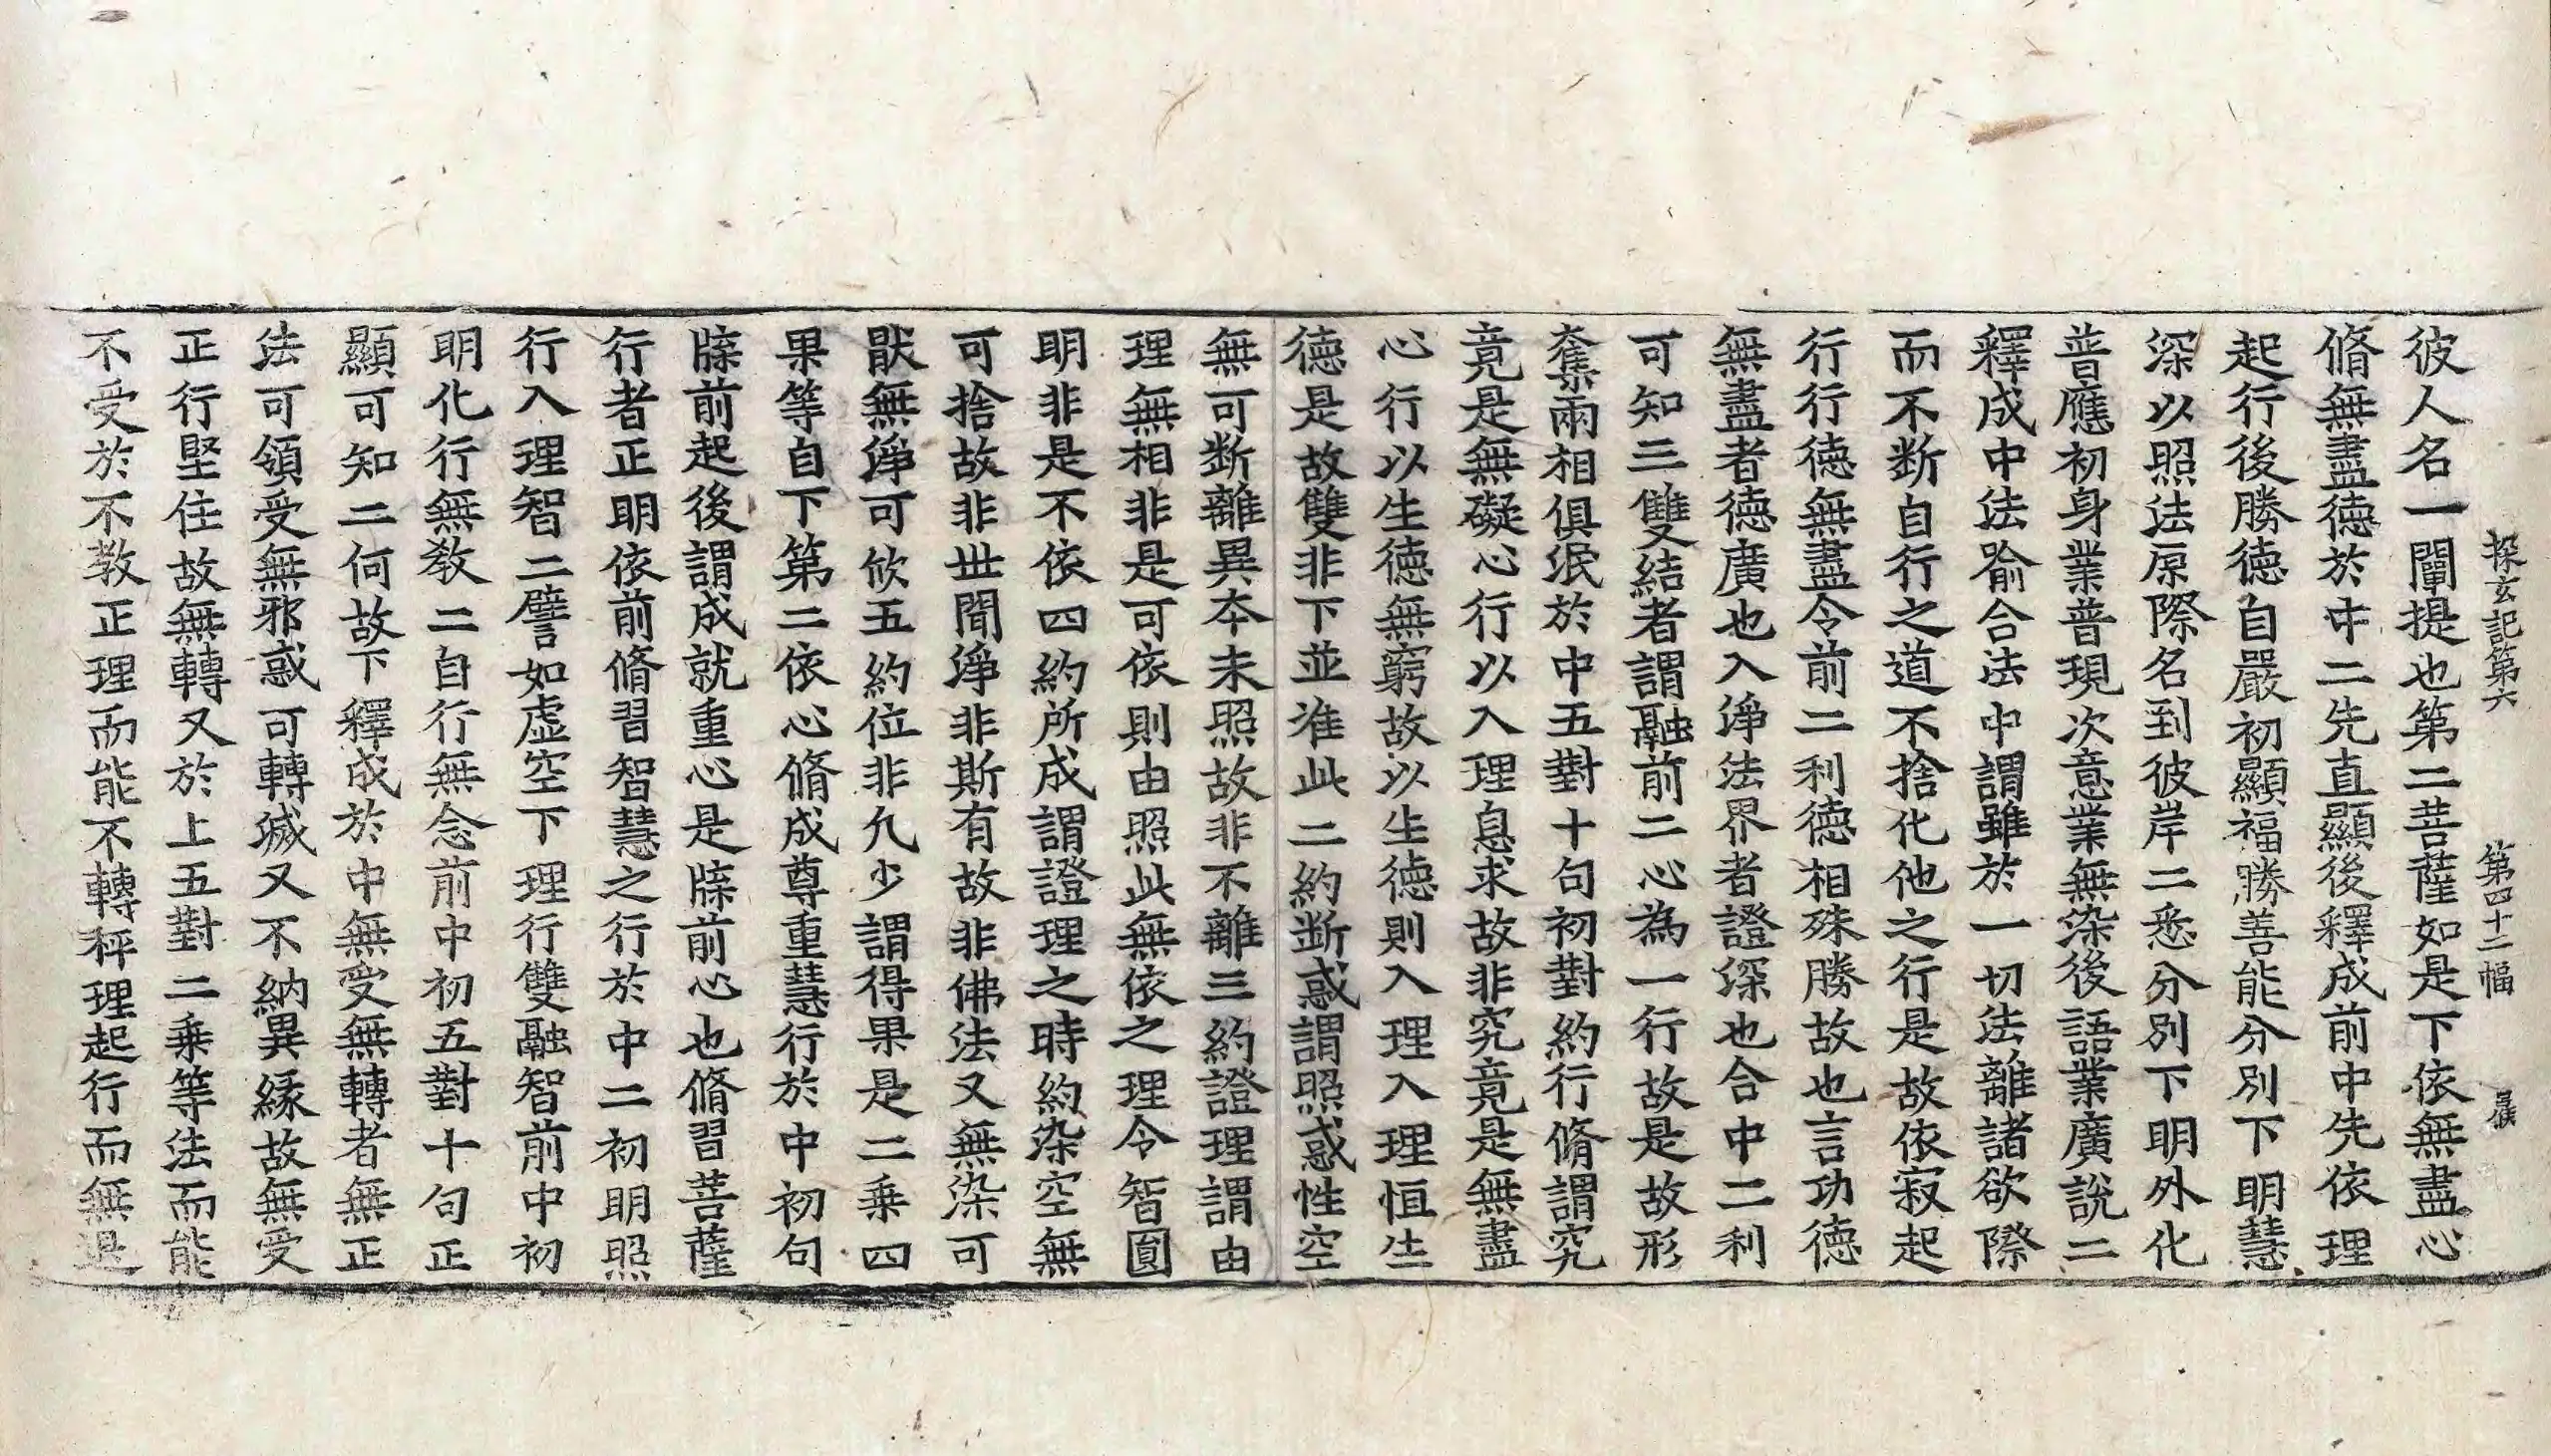 探玄記第六 第四十二幅
彼人名一闡提也第二菩薩如是下依無盡心
脩無盡德於中二先直顯後釋成前中先依理
起行後勝德自嚴初顯福勝善能分別下明慧
深以照法原際名到彼岸二悉分別下明外化
普應初身業普現次意業無染後語業廣說二
釋成中法喻合法中謂雖於一切法離諸欲際
而不斷自行之道不捨化他之行是故依寂起
行行德無盡令前二利德相殊勝故也言功德
無盡者德廣也入淨法界者證深也合中二利
可知三雙結者謂融前二心為一行故是故形
奪兩相俱泯於中五對十句初對約行脩謂究
竟是無礙心行以入理息求故非究竟是無盡
心行以生德無窮故以生德則入理入理恒生
德是故雙非下並准此二約斷惑謂照惑性空
無可斷離異本未照故非不離三約證理謂由
理無相非是可依則由照此無依之理令智圓
明非是不依四約所成謂證理之時約染空無
可捨故非世間淨非斯有故非佛法又無染可
猒無淨可欣五約位非凡少謂得果是二乘四
果等自下第二依心脩成尊重慧行於中初句
牒前起後謂成就重心是牒前心也脩習菩薩
行者正明依前脩習智慧之行於中二初明照
行入理智二譬如虛空下理行雙融智前中初
明化行無教二自行無念前中初五對十句正
顯可知二何故下釋成於中無受無轉者無正
法可領受無邪惑可轉滅又不納異緣故無受
正行堅住故無轉又於上五對二乘等法而能
不受於不教正理而能不轉秤理起行而無退